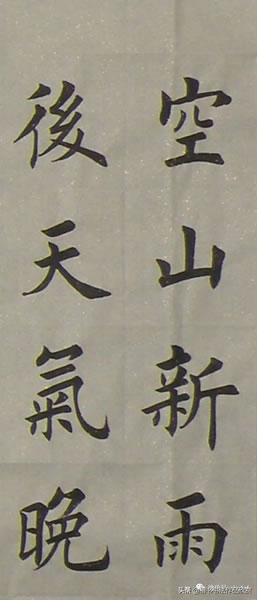 空山新雨
後天氣晚